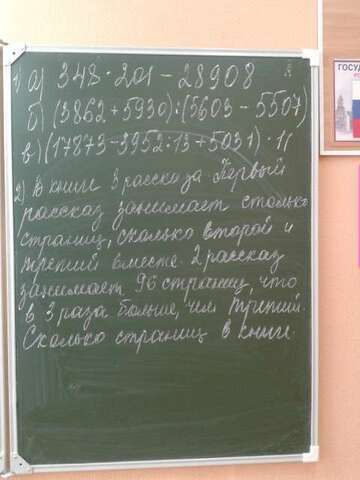 1) а) 348 · 201 - 28908
б) (3862 + 5930) : (5603 - 5507)
в) (17873 - 3952 : 13 + 5031) ·
2) В книге 3 рассказа Первый
рассказ занимает столько
страниц, сколько второй и
третий вместе. 2 рассказ
занимает 96 страниц, что
в 3 раза больше, чем третий.
Сколько страниц в книге.
ГОСУ